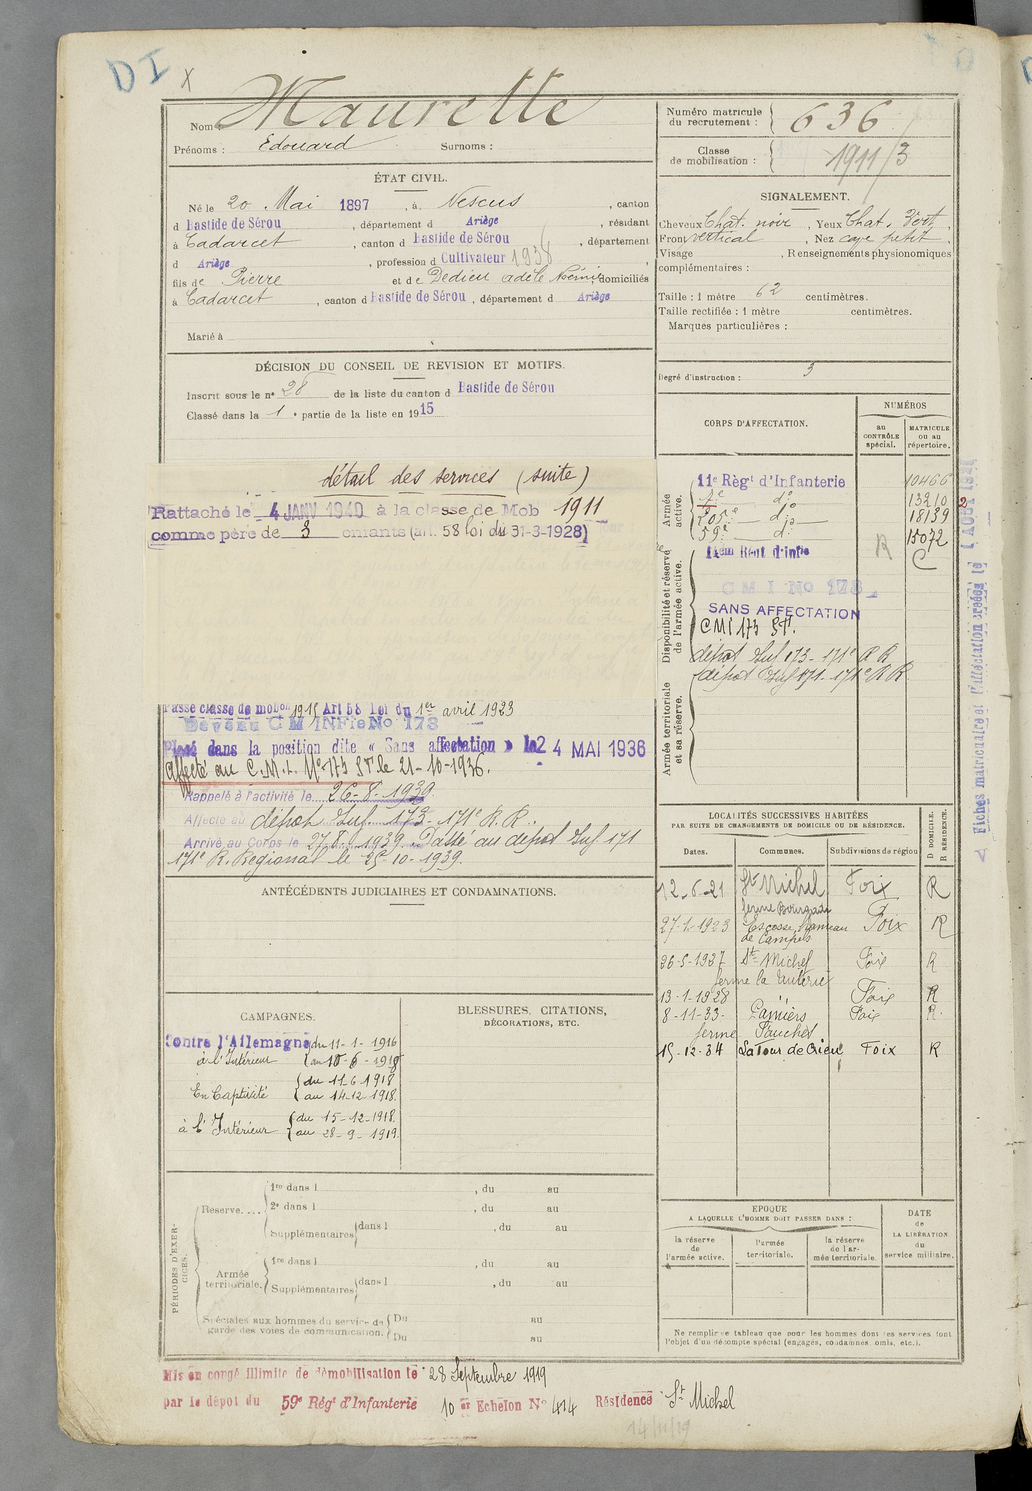 DI
X
Nom : Maurette
Prénoms : Edouard Surnoms :
Numéro matricule du recrutement : 636
Classe de mobilisation : 1911/3
ÉTAT CIVIL.
Né le 20 Mai 1897, à Nescus, canton
d Bastide de Sérou, département d Ariège, résidant
à Cadarcet, canton d Bastide de Sérou, département
d Ariège, profession d Cultivateur 1936
fils de Pierre et de Dedieu adèle Noémi domiciliés
à Cadarcet, canton d Bastide de Sérou, département d Ariège
Marié à
SIGNALEMENT.
Cheveux Chat. noir, Yeux Chat. Vert.
Front vertical, Nez petit.
Visage , Renseignements physionomiques
complémentaires :
Taille : 1 mètre 62 centimètres.
Taille rectifiée : 1 mètre centimètres.
Marques particulières :
Degré d'instruction : 3
DÉCISION DU CONSEIL DE REVISION ET MOTIFS.
Inscrit sous le n° 28 de la liste du canton d Bastide de Sérou
Classé dans la 1e partie de la liste en 1915
détail des services (suite)
Rattaché le 4 JANV 1940 à la classe de Mob 1911
comme père de 3 enfants (art. 58 loi du 31-3-1928)
Passé classe de mobon 1915 Art 58 Loi du 1er avril 1923
Dévénu C M INFie No 178
Placé dans la position dite « Sans affectation » le 24 MAI 1936
Affecté au C.M.I. N° 173 St. le 21-10-1936.
Rappelé à l'activité le 26-8-1939
Affecté au dépôt Inf. 173 - 171e R.R..
Arrivé au Corps le 27.8.1939. Passé au dépôt Inf 171
171e R. Régional le 25-10-1939.
CORPS D'AFFECTATION.
NUMÉROS
AU CONTRÔLE spécial.
MATRICULE ou au répertoire.
Armée active.
11e Régt d'Infanterie 10466
do 13210 2
do 18139
59e d. 15072
Disponibilité et réserve de l'armée active.
11em Régt d'Infie R C
C M I No 178
SANS AFFECTATION
CMI 173 St.
dépôt Inf 173 - 171e R R
dépôt Inf 171 - 171e R R
Armée territoriale et sa réserve.
Fiches matriculaire et d'affectation créées le
ANTÉCÉDENTS JUDICIAIRES ET CONDAMNATIONS.
LOCALITÉS SUCCESSIVES HABITÉES
PAR SUITE DE CHANGEMENTS DE DOMICILE OU DE RÉSIDENCE.
Dates. Communes. Subdivisions de région D DOMICILE. R RÉSIDENCE.
12-6-21 St Michel Foix R
ferme Bourgade
27-1-1923 Escosse, hameau Foix R
de Campes
St Michel Foix R
ferme la
13-1-1928 " Foix R
8-11-33- Pamiers Foix R.
ferme Fauchet
15-12-34 La Tour de Crieu Foix R
CAMPAGNES.
Contre l'Allemagne
à l'Intérieur du 11-1-1916 au 10-6-1918
En Captivité du 11 6 1918 au 14-12-1918.
à l'Intérieur du 15-12-1918. au 28-9-1919.
BLESSURES, CITATIONS,
DÉCORATIONS, ETC.
PÉRIODES D'EXERCICES.
Réserve....
1re dans l , du au
2e dans l , du au
Supplémentaires dans l , du au
Armée territoriale.
1re dans l , du au
Supplémentaires dans l , du au
Spéciales aux hommes du service de garde des voies de communication.
Du au
Du au
EPOQUE
A LAQUELLE L'HOMME DOIT PASSER DANS :
la réserve de l'armée active.
l'armée territoriale.
la réserve de l'armée territoriale.
DATE de LA LIBÉRATION du service militaire.
Ne remplir ce tableau que pour les hommes dont les services font
l'objet d'un décompte spécial (engagés, condamnés, omis, etc.).
Mis en congé illimité de démobilisation le 28 Septembre 1919
par le dépôt du 59e Régt d'Infanterie 10 er Echelon No 414 Résidence St Michel
14/11/19